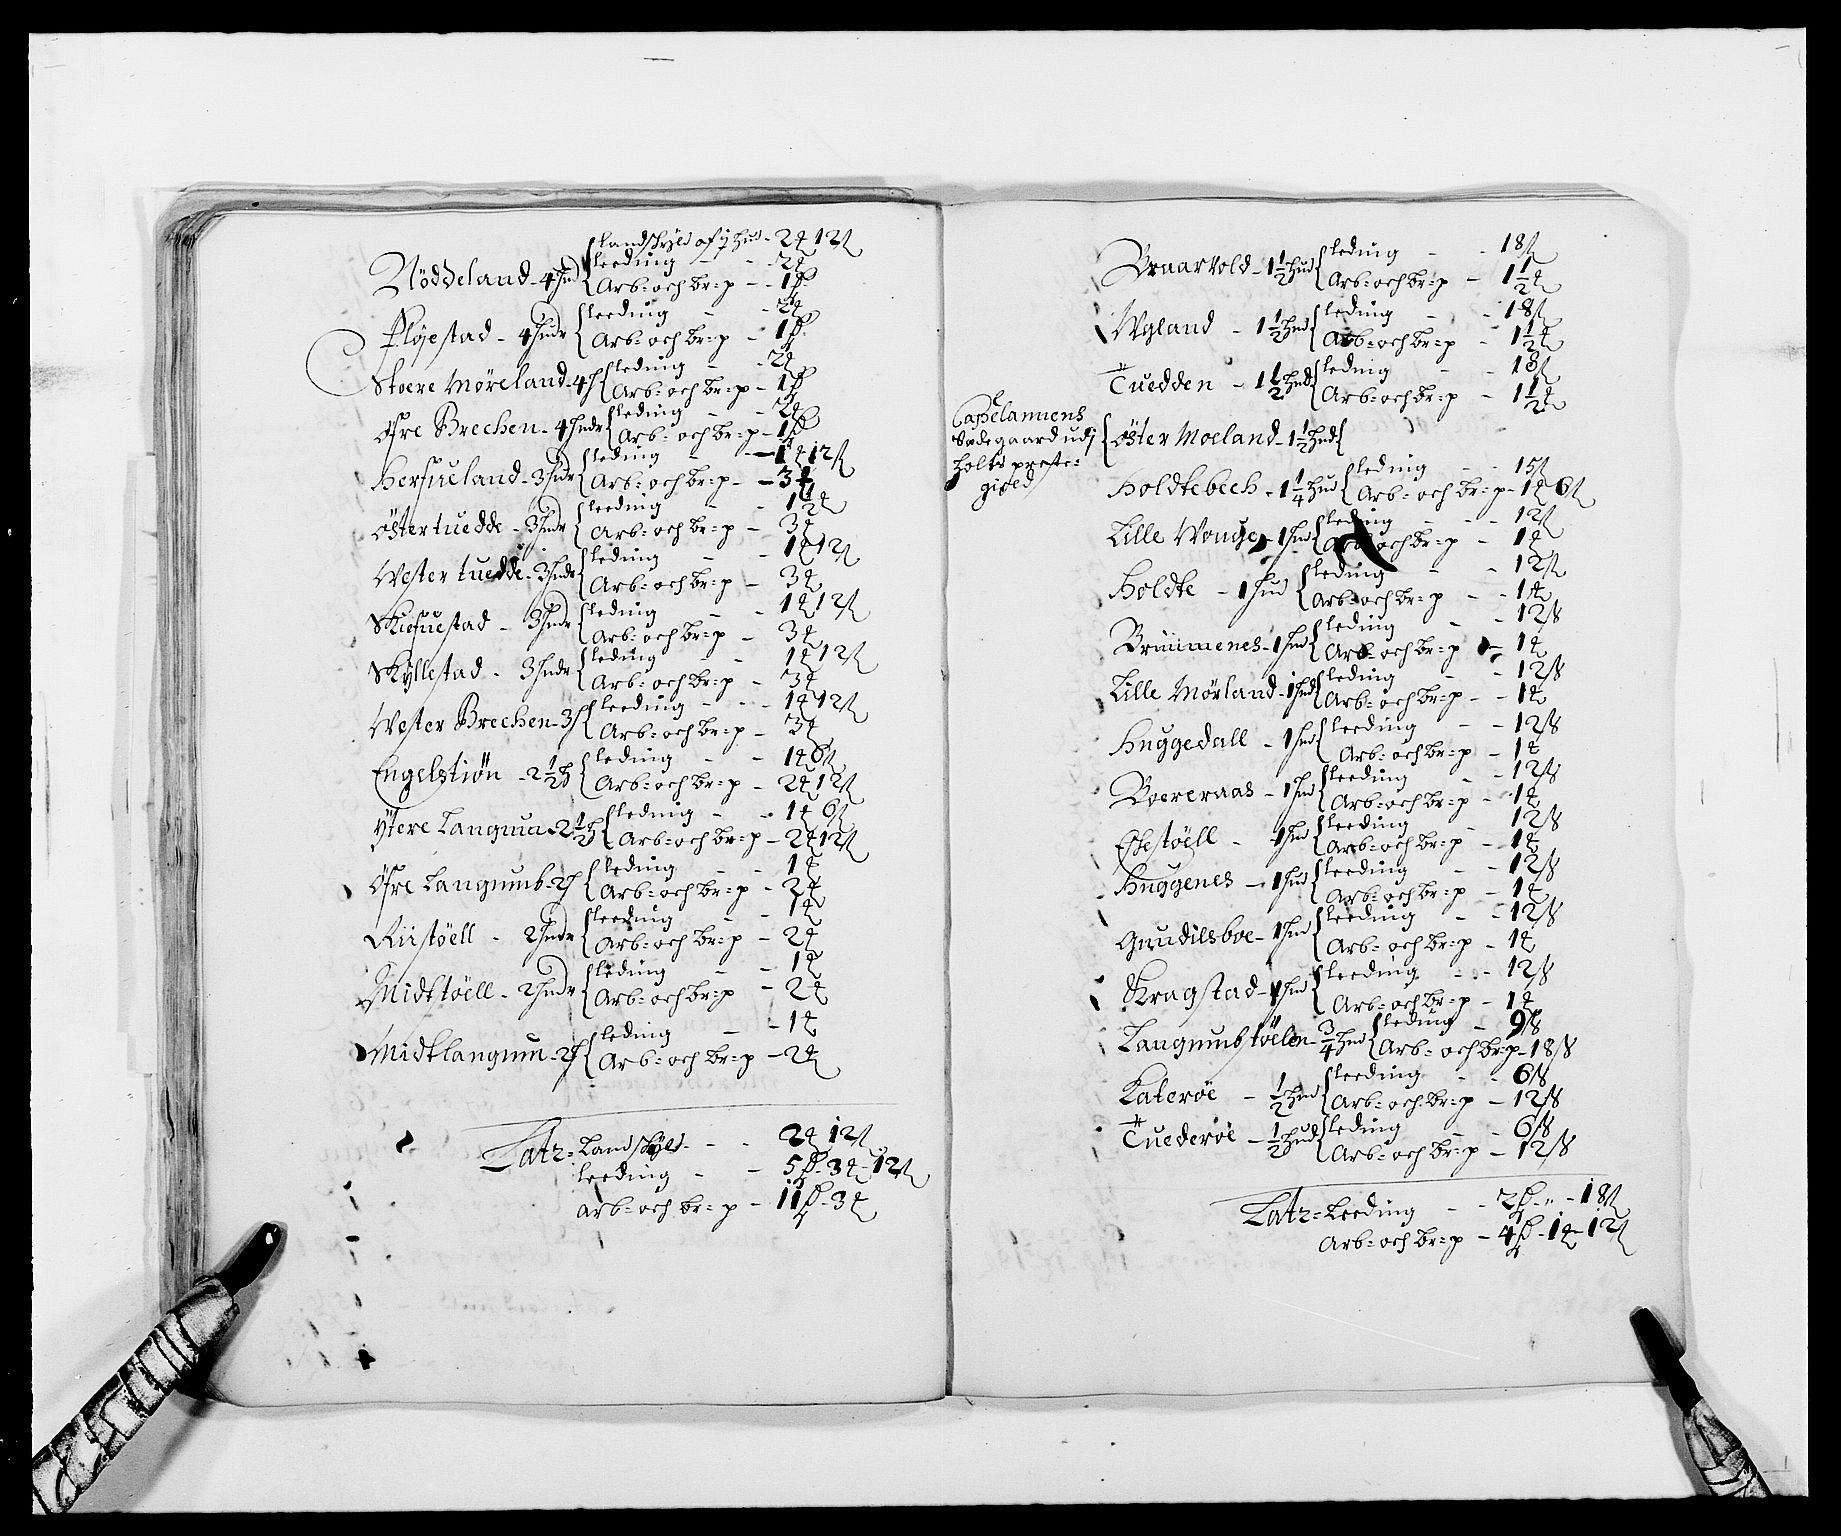 Landskyld af j hud - 2 ₰ 12 ß
Nöddeland - 4 hud leeding - - 2 ₰
Arb= och br=p - - 1 ß
Fløyestad - 4 hudr leeding - - 2 ₰
Arb= och br=p - 1 ß
Stoere Møreland - 4 h leding - - 2 ₰
Arb= och br=p - 1 ß
Øfre Brechen - 4 hudr leding - - 2 ₰
Arb= och br=p - 1 ß
Herfueland - 3 hudr leding - - 1 ₰ 12 ß
Arb= och br=p - 3 ₰
Östertuedde - 3 hudr leeding - - 1 1/2 ₰
Arb= och br=p - 3 ₰
Wester tuedde - 3 hudr leding - - 1 ₰ 12 ß
Arb= och br=p - 3 ₰
Skiefuestad - 3 hudr leding - - 1 ₰ 12 ß
Arb= och br=p - 3 ₰
Skyllestad - 3 hudr leding - - 1 ₰ 12 ß
Arb= och br=p - 3 ₰
Wester Brechen - 3 h leeding - - - 1 ₰ 12 ß
Arb= och br=p - 3 ₰
Engelstiøn - 2 1/2 h leding - - 1 ₰ 6 ß
Arb= och br=p - 2 ₰ 12 ß
Ytere Langnun - 2 1/2 h leding - - 1 ₰ 6 ß
Arb= och br=p - 2 ₰ 12 ß
Øfre Langnumb - 2 h leding - - 1 ₰
Arb= och br=p - 2 ₰
Riistöell - 2 hudr leeding - - 1 ₰
Arb= och br=p - 2 ₰
Midtstöell - 2 hudr leding - - 1 ₰
Arb= och br=p - 2 ₰
Midtlangnun - 2 h leding - - 1 ₰
Arb= och br=p - 2 ₰
Latr= Landskyld - - 2 ₰ 12 ß
leeding - - 5 ß - 3 ₰ - 12 ß
arb= och br=p - 11 ß - 3 ₰
Braarvold - 1 1/2 hud leding - - 18 ß
Arb= och br=p - 1 1/2 ₰
Wgland - 1 1/2 hud leding - - 18 ß
Arb= och br=p - 1 1/2 ₰
Tuedden - 1 1/2 hud leding - - 18 ß
Arb= och br=p - 1 1/2 ₰
Cappelanuens
Sædegaard udj
holts preste=
gield
Öster Moeland - 1 1/2 hud
Holdtebech - 1 1/4 hud leding - - 15 ß
Arb= och br=p - 1 ₰ 6 ß
Lille Wouge - 1 hud leding - - - 12 ß
Arb= och br=p - 1 ₰
Holdte - 1 hud leding - - 12 ß
Arb= och br=p - - 1 ₰
Bruumenes - 1 hud leding - - 12 ß
Arb= och br=p - 1 ₰
Lille Mørland - 1 hud leding - - 12 ß
Arb= och br=p - - 1 ₰
Huggedall - 1 hud leeding - - 12 ß
Arb= och br=p - 1 ₰
Boereraas - 1 hud leeding - - 12 ß
Arb= och br=p - 1 ₰
Efestöell - 1 hud leeding - 12 ß
Arb= och br=p - 1 ₰
Huggenes - 1 hud leeding - - 12 ß
Arb= och br=p - 1 ₰
Gundilsboe - 1 hud leeding - - 12 ß
Arb= och br=p - 1 ₰
Kragstad - 1 hud leeding - - 12 ß
Arb= och br=p - 1 ₰
Langnumbstöelen - 3/4 hud leding - 9 ß
Arb= och br=p - 18 ß
Laterøe - 1/2 hud leeding - - 6 ß
Arb= och br=p - 12 ß
Tuederøe - 1/2 hud leding - - 6 ß
Arb= och br=p - 12 ß
Latr= Leeding - - 2 ß - " - 18 ß
Arb= och br=p - 4 ß - 1 ₰ - 12 ß